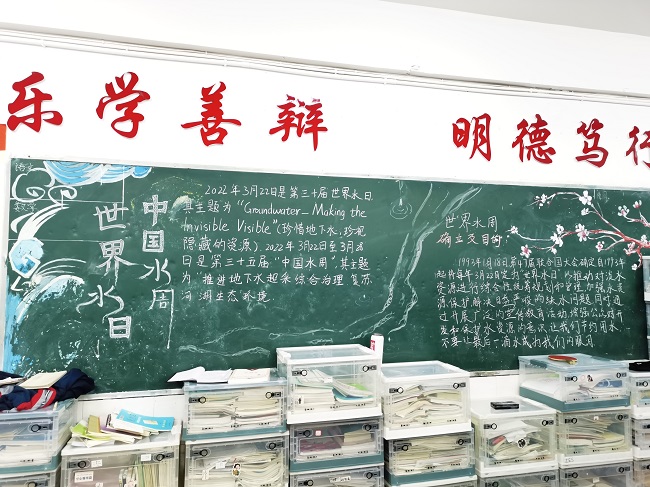 乐学善辩
明德笃行
语文
数学
世界水日
中国水周
2022年3月22日是第三十届世界水日
其主题为“Groundwater_ Making the
Invisible Visible”(珍惜地下水,珍视
隐藏的资源) 2022年3月22日至3月28
日是第三十五届“中国水周”,其主题
为“推进地下水超采综合治理 复苏
河湖生态环境
世界水周
确立交目的:
1993年1月18日第47届联合国大会确定自1993年
起将每年3月22日定为“世界水日”以推动对淡水
资源进行综合性统筹规划和管理加强水资
源保护解决日益严峻的缺水问题同时通
过开展广泛的宣传教育活动,增强公众对开
发和保护水资源的意识让我们节约用水
不要让最后一滴水成为我们的眼泪